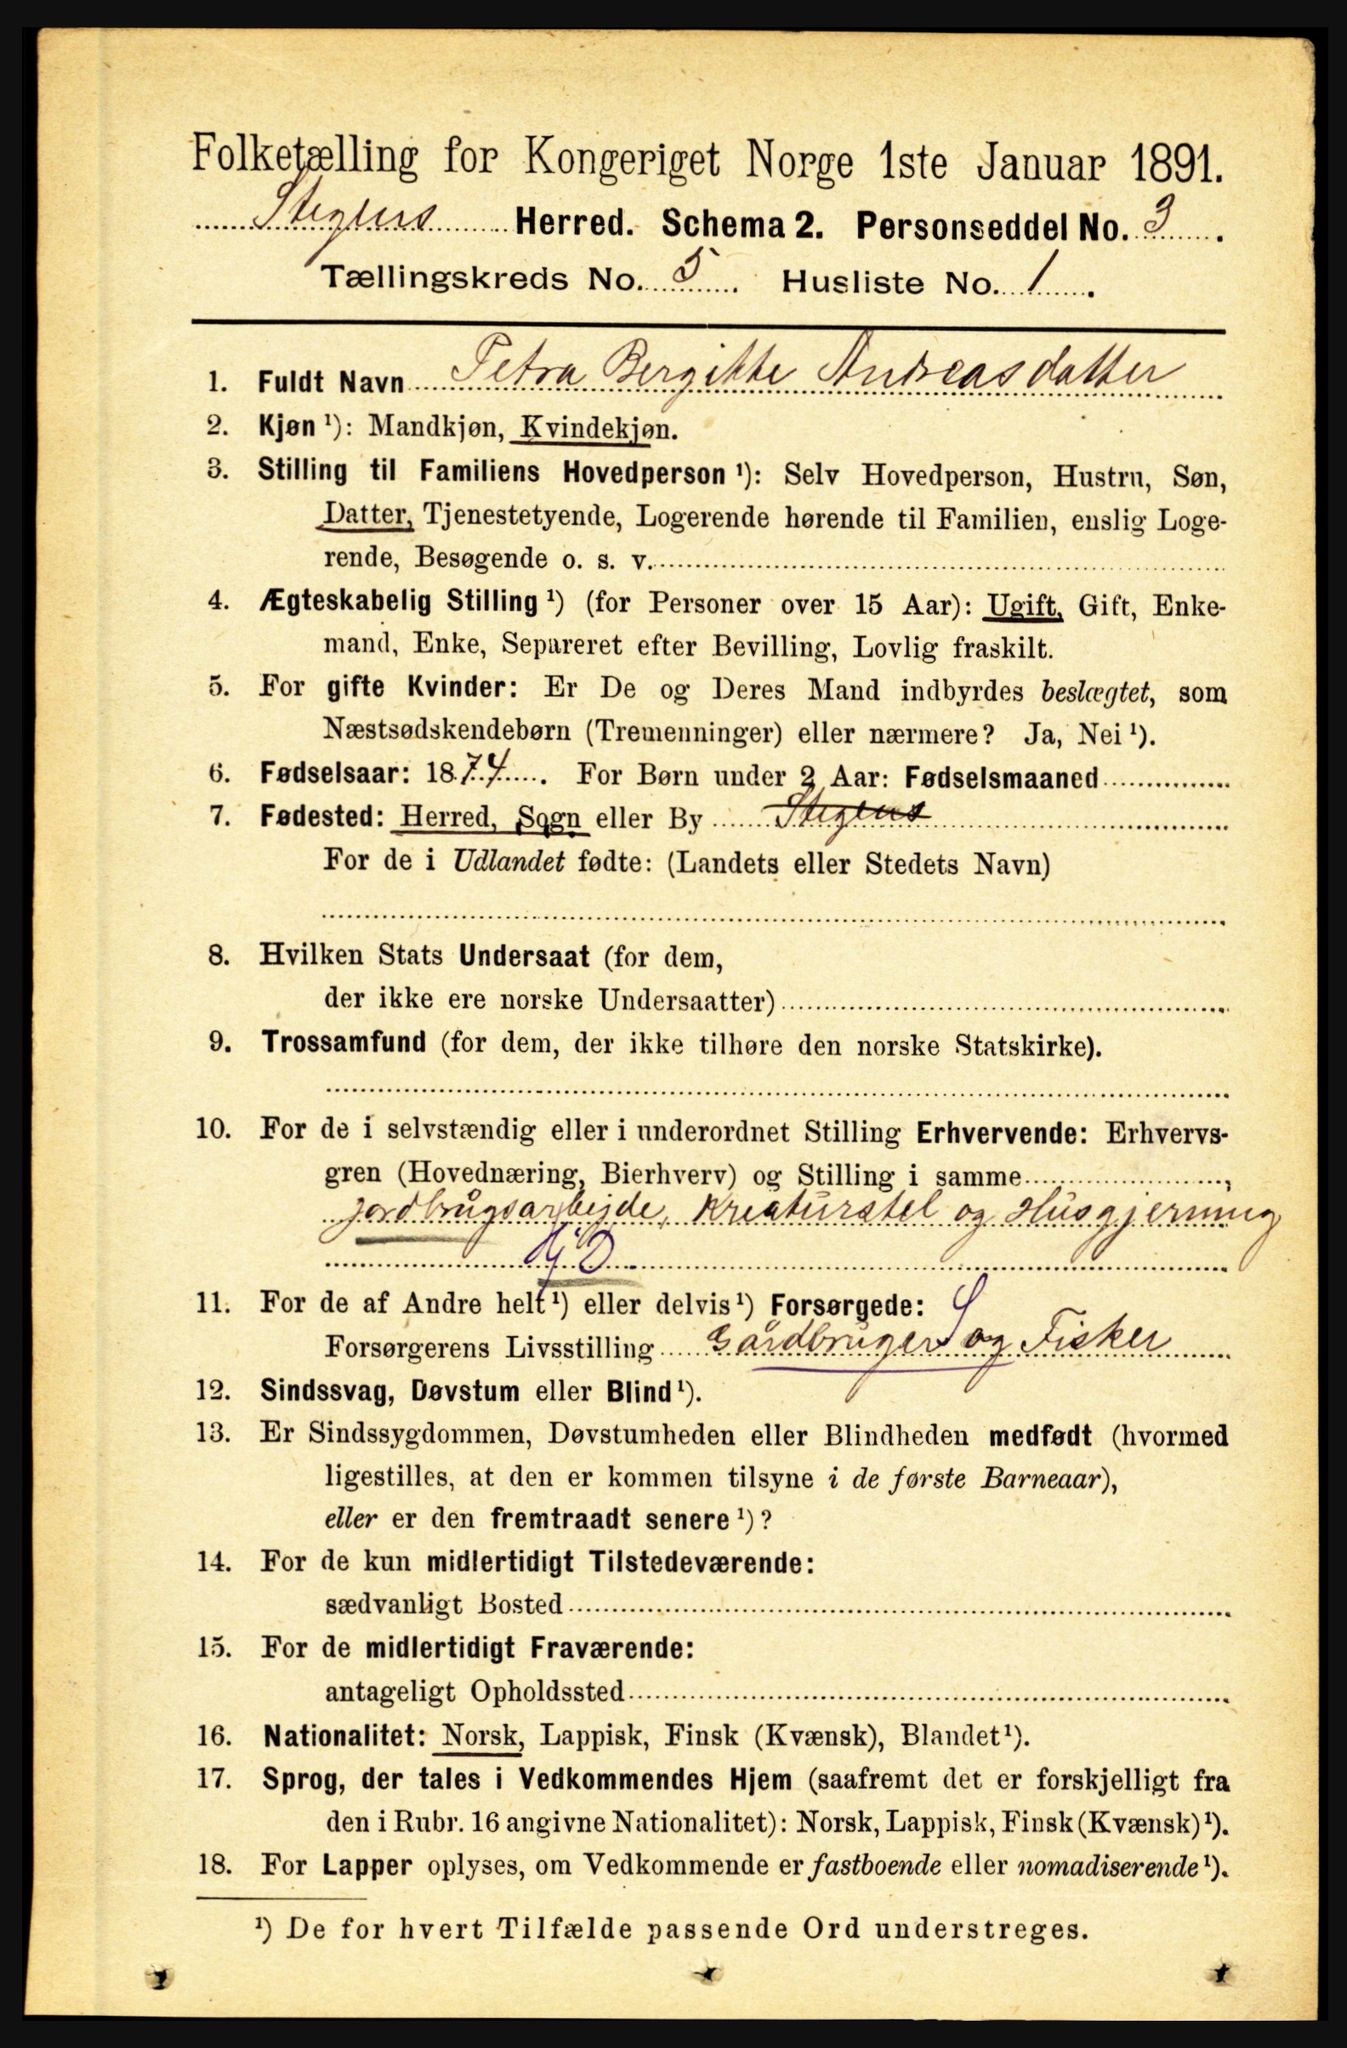 Folketælling for Kongeriget Norge 1ste Januar 1891.
Stegens Herred. Schema 2. Personseddel No. 3.
Tællingskreds No. 5. Husliste No. 1.
1. Fuldt Navn Petra Bergitte Andreasdatter
2. Kjøn ¹): Mandkjøn, Kvindekjøn.
3. Stilling til Familiens Hovedperson ¹): Selv Hovedperson, Hustru, Søn,
Datter, Tjenestetyende, Logerende hørende til Familien, enslig Loge-
rende, Besøgende o. s. v.
4. Ægteskabelig Stilling ¹) (for Personer over 15 Aar): Ugift, Gift, Enke-
mand, Enke, Separeret efter Bevilling, Lovlig fraskilt.
5. For gifte Kvinder: Er De og Deres Mand indbyrdes beslægtet, som
Næstsødskendebørn (Tremenninger) eller nærmere? Ja, Nei ¹).
6. Fødselsaar: 1874. For Børn under 2 Aar: Fødselsmaaned
7. Fødested: Herred, Sogn eller By Stegens
For de i Udlandet fødte: (Landets eller Stedets Navn)
8. Hvilken Stats Undersaat (for dem,
der ikke ere norske Undersaatter)
9. Trossamfund (for dem, der ikke tilhøre den norske Statskirke).
10. For de i selvstændig eller i underordnet Stilling Erhvervende: Erhvervs-
gren (Hovednæring, Bierhverv) og Stilling i samme
Jordbrugsarbejde, Kreaturstel og Husgjerning
11. For de af Andre helt ¹) eller delvis ¹) Forsørgede:
Forsørgerens Livsstilling Gårdbruger og Fisker
12. Sindssvag, Døvstum eller Blind ¹).
13. Er Sindssygdommen, Døvstumheden eller Blindheden medfødt (hvormed
ligestilles, at den er kommen tilsyne i de første Barneaar),
eller er den fremtraadt senere ¹)?
14. For de kun midlertidigt Tilstedeværende:
sædvanligt Bosted
15. For de midlertidigt Fraværende:
antageligt Opholdssted
16. Nationalitet: Norsk, Lappisk, Finsk (Kvænsk), Blandet ¹).
17. Sprog, der tales i Vedkommendes Hjem (saafremt det er forskjelligt fra
den i Rubr. 16 angivne Nationalitet): Norsk, Lappisk, Finsk (Kvænsk) ¹).
18. For Lapper oplyses, om Vedkommende er fastboende eller nomadiserende ¹).
¹) De for hvert Tilfælde passende Ord understreges.